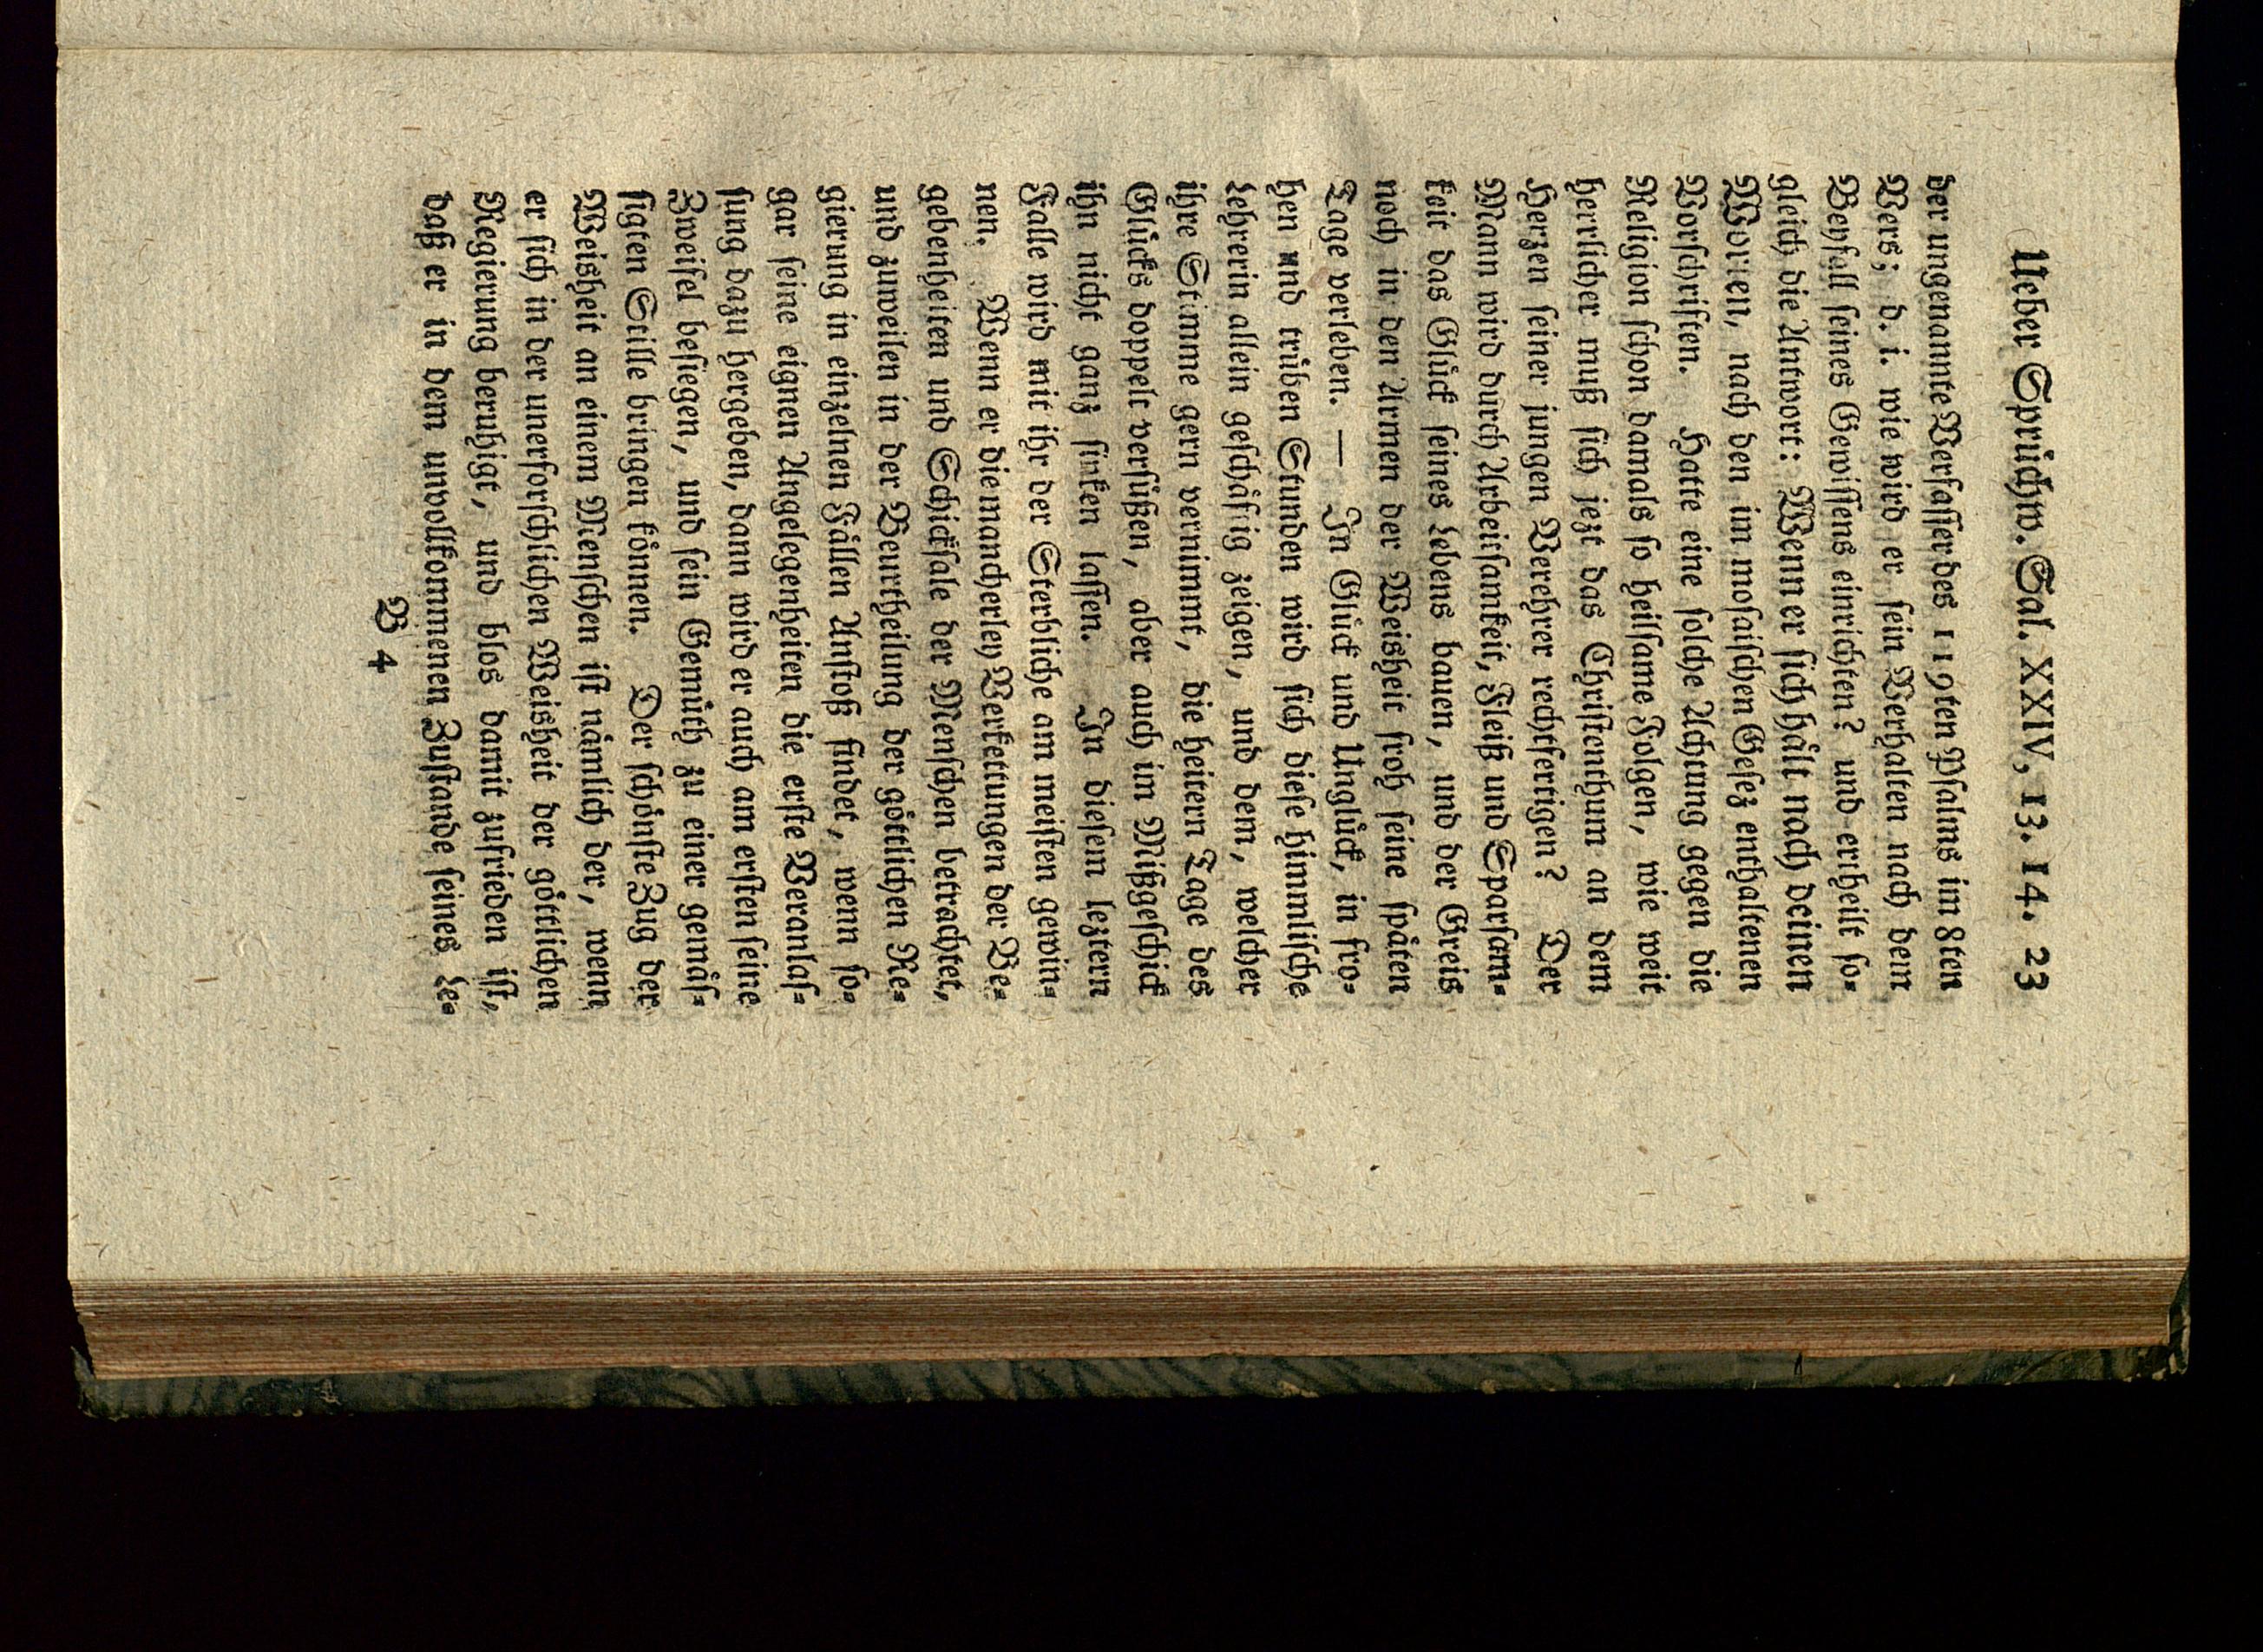 Ueber Sprüchw. Sal. XXIV, 13. 14. 23
der ungenannte Verfasser des 119ten Psalms im 8ten
Vers; d. i. wie wird er sein Verhalten nach dem
Beyfall seines Gewissens einrichten? und ertheilt so-
gleich die Antwort: Wenn er sich hält nach deinen
Worten, nach den im mosaischen Gesez enthaltenen
Vorschriften. Hatte eine solche Achtung gegen die
Religion schon damals so heilsame Folgen, wie weit
herrlicher muß sich jezt das Christenthum an dem
Herzen seiner jungen Verehrer rechtfertigen? Der
Mann wird durch Arbeitsamkeit, Fleiß und Sparsam-
keit das Glück seines Lebens bauen, und der Greis
noch in den Armen der Weisheit froh seine späten
Tage verleben. — In Glück und Unglück, in fro-
hen und trüben Stunden wird sich diese himmlische
Lehrerin allein geschäftig zeigen, und dem, welcher
ihre Stimme gern vernimmt, die heitern Tage des
Glücks doppelt versüßen, aber auch im Mißgeschick
ihn nicht ganz sinken lassen. In diesem leztern
Falle wird mit ihr der Sterbliche am meisten gewin-
nen. Wenn er die mancherley Verkettungen der Be-
gebenheiten und Schicksale der Menschen betrachtet,
und zuweilen in der Beurtheilung der göttlichen Re-
gierung in einzelnen Fällen Anstoß findet, wenn so-
gar seine eignen Angelegenheiten die erste Veranlas-
sung dazu hergeben, dann wird er auch am ersten seine
Zweifel besiegen, und sein Gemüth zu einer gemäs-
sigten Stille bringen können. Der schönste Zug der
Weisheit an einem Menschen ist nämlich der, wenn
er sich in der unerforschlichen Weisheit der göttlichen
Regierung beruhigt, und blos damit zufrieden ist,
daß er in dem unvollkommenen Zustande seines Le-
B 4